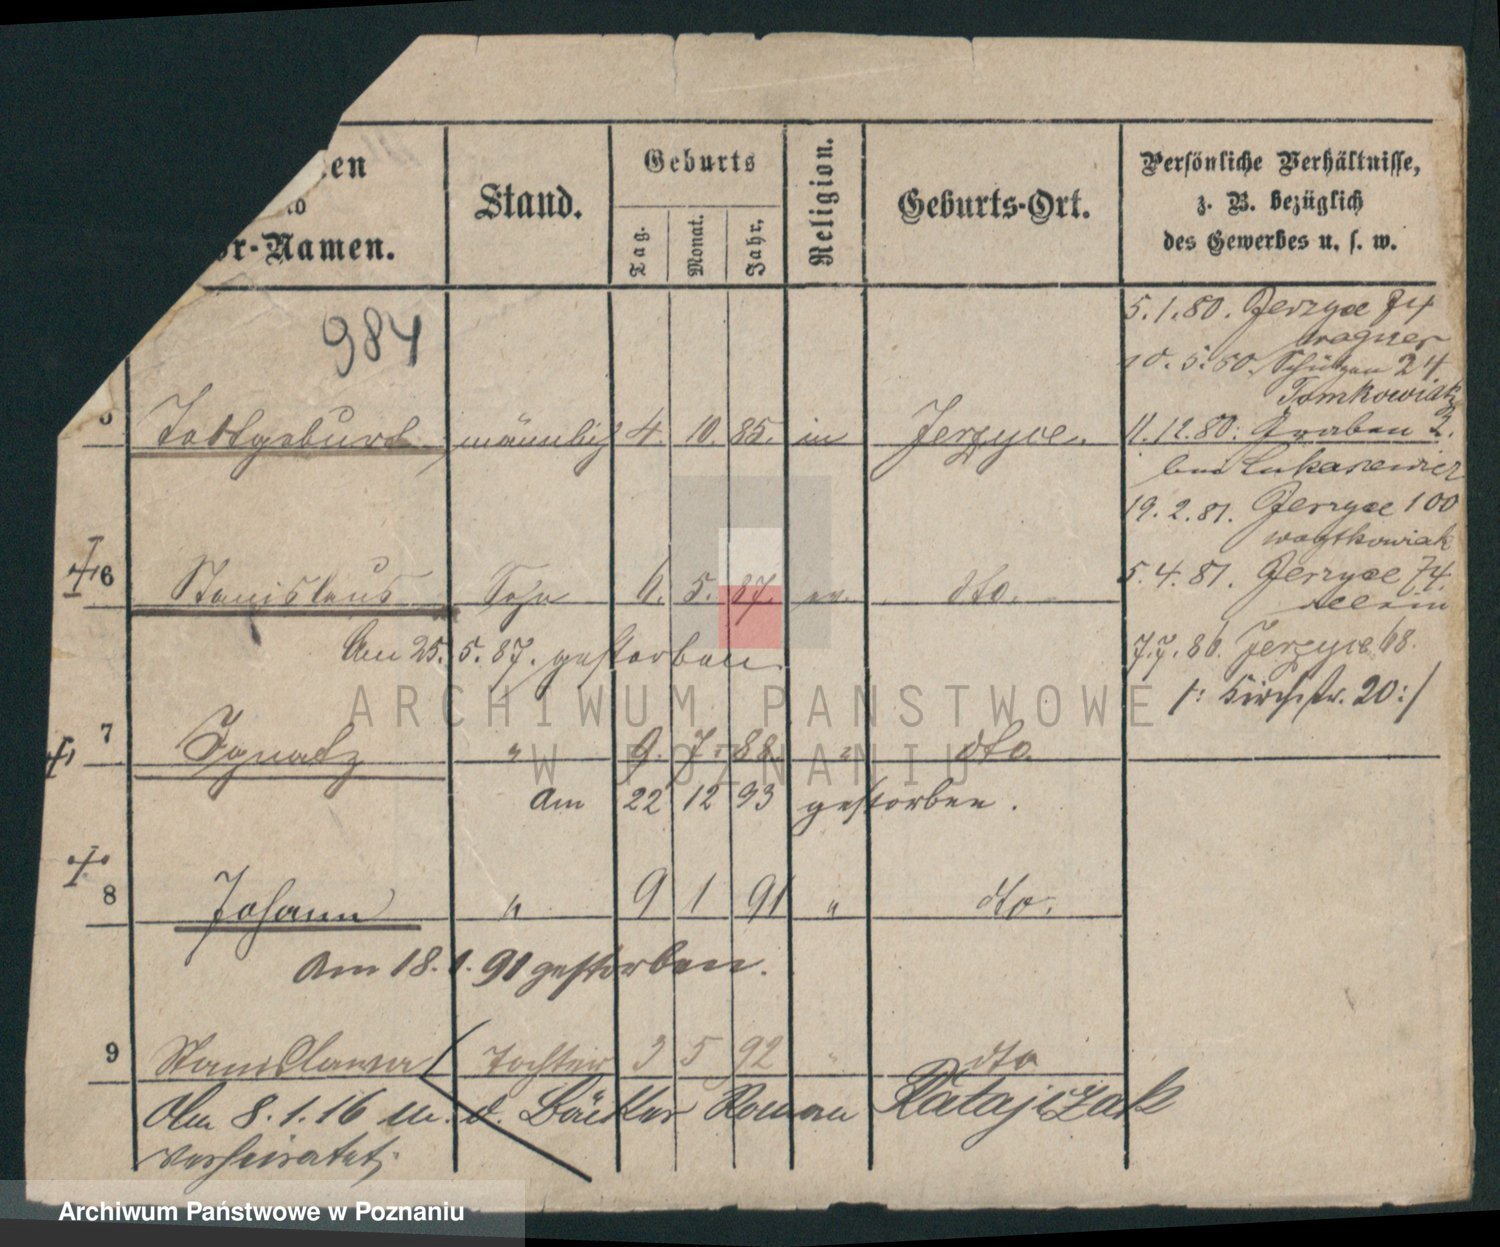 en
Vor-Namen.
Stand.
Geburts
Tag.
Monat.
Jahr.
Religion.
Geburts-Ort.
Persönliche Verhältnisse,
z. B. bezüglich
des Gewerbes u. s. w.
984
5.1.80. Jerzyce 74
Wagner
10.5.80. Schützen 24
Tomkowiak
5 Todtgeburt männlich 4. 10. 85. in Jerzyce. 11.12.80. Graben 2.
bei Lukasiewicz
19.2.81. Jerzyce 100
Woytkowiak
6 Stanislaus Sohn 6. 5. 87. dto. 5.4.81. Jerzyce 74.
allein
Am 25.5.87. gestorben. 7.7.86. Jerzyce 68.
/: Kirchstr. 20:/
7 Ignatz " 9. 7. 88. " dto.
am 22 12 93 gestorben.
8 Johann " 9 1 91 " dto.
am 18.1.91 gestorben.
9 Stanislawa Tochter 3 5 92 " dto
Am 8.1.16 m. d. Bäcker Roman Ratajczak
verheiratet.
ARCHIWUM PAŃSTWOWE
W POZNANIU
Archiwum Państwowe w Poznaniu